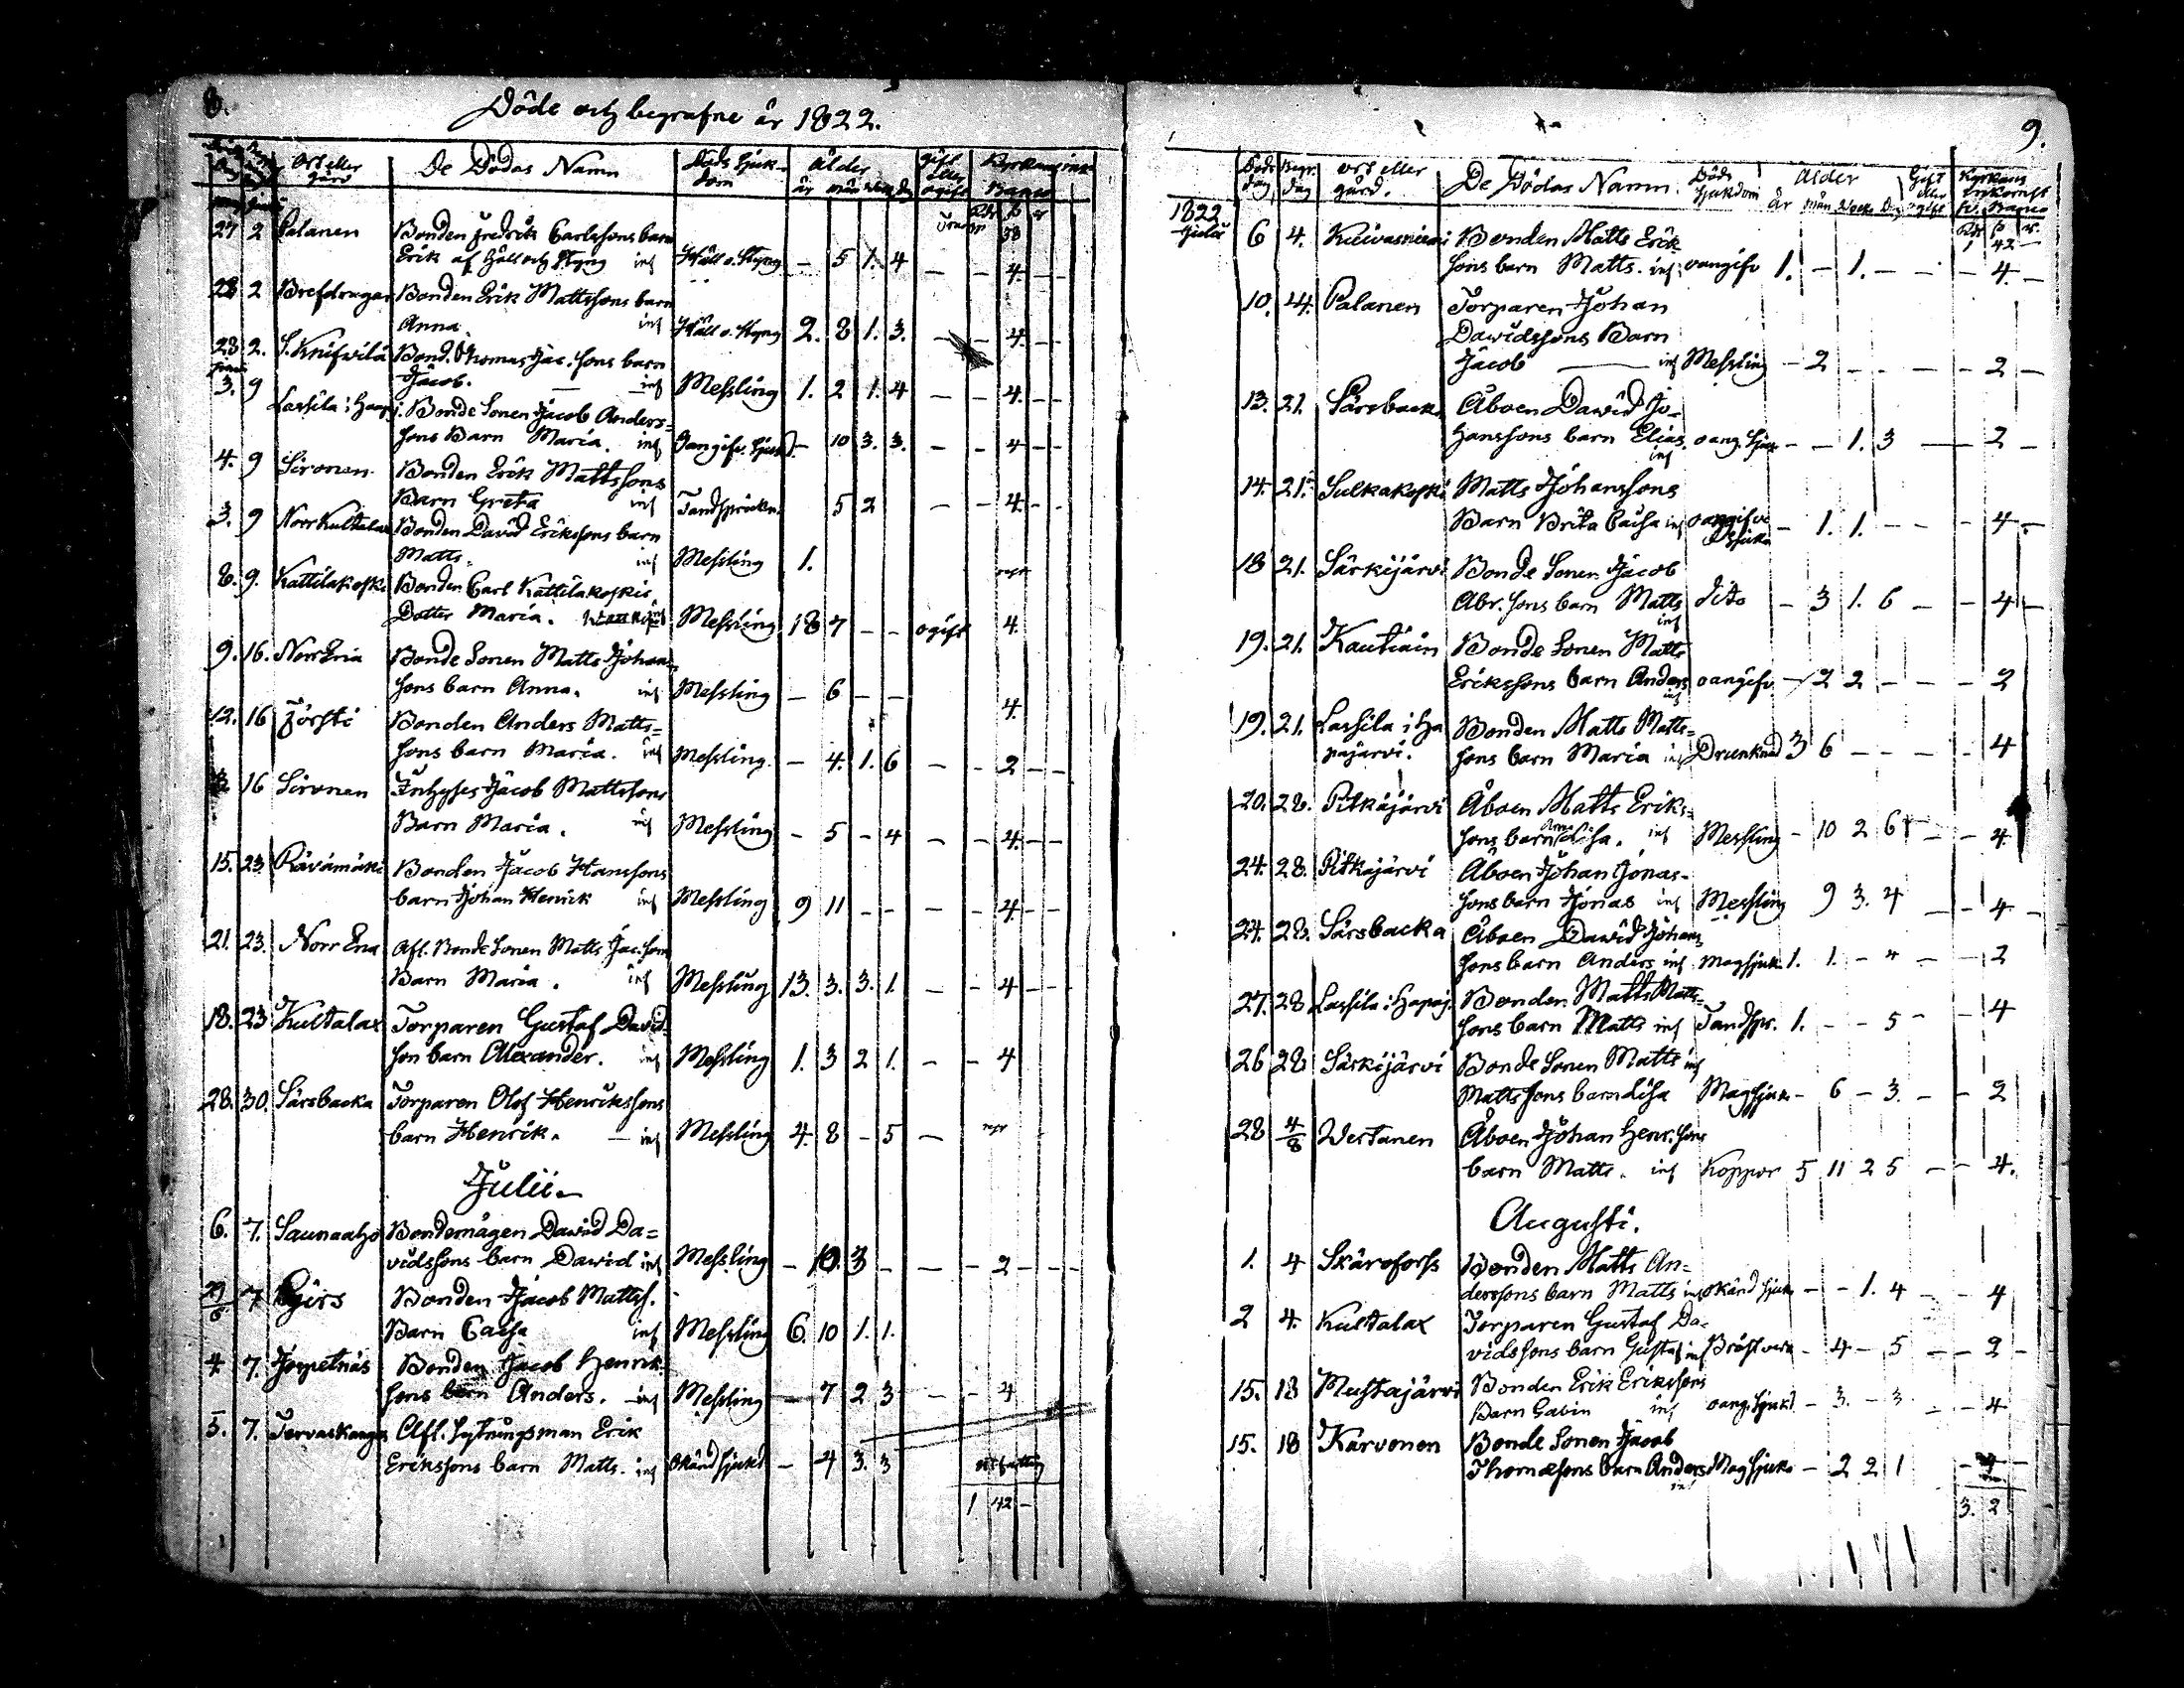 8.
Döde och begrafne år 1822.
Ort eller gård De Dödas Namn Döds sjukdom ålder gift eller ogift
år mån Banco
27 2 Palanen Bonden Fredrik Carlssons barn
Erik af håll och styng Håll o. Styng — 5 1. 4 — — 4 — —
28 2 Brefdragar Bonden Erik Mattssons barn
Anna. Håll o. Styng 2. 8 1. 3. — — 4. — —
28 2. Bond. Thomas Jac. sons barn
Jacob. — Messling 1. 2 1. 4 — — 4. — —
3. 9 Lassila i Bonde Sonen Jacob Anders-
sons Barn Maria. — 10 3. 3. — — 4 — —
4. 9 Sironen Bonden Erik Mattssons
Barn Greta 5 2 — — 4. — —
3. 9 Norr Kultalax Bonden David Erikssons barn
Matts. Messling 1.
8. 9. Kattilakoski Bonden Carl Kattilakoskis
Dotter Maria. Messling 18 7 — — ogift 4.
9. 16. Norr Ena Bonde Sonen Matts Johans-
sons barn Anna. Messling — 6 — —
4.
12. 16 Försti Bonden Anders Matts-
sons barn Maria. Messling. — 4. 1. 6 — — 2 — —
16 Sironen Inhyses Jacob Mattssons
Barn Maria. Messling — 5 — 4 — — 4. — —
15. 23. Rävämäki Bonden Jacob Hanssons
barn Johan Henrick Messling 9 11 — — — — 4 — —
21. 23. Norr Ena Afl. Bonde Sonen Matts Jac. sons
Barn Maria. Messling 13. 3. 3. 1. — — 4 — —
18. 23 Kultalax Torparen Gustaf David-
son barn Alexander. Messling 1. 3 2 1. — — 4
28. 30. Särsbacka Torparen Olof Henrikssons
barn Henrik. — Messling 4. 8 — 5 —
Julii.
6. 7. Saunaaho Bondemågen Dawid Da=
vidssons barn Dawid Messling — 10. 3 — — — 2 — — —
7 Bonden Jacob Mattss.
Barn Caisa Messling 6. 10 1. 1.
4 7. Jospetnäs Bonden Jacob Henrik-
sons barn Anders. Messling — 7 2 3 — — 4
5. 7. Tervaskangas Afl. Erik
Erikssons barn Matts. Okänd sjukd — 4 3. 3
1 42 —
9.
Döds dag Begr. dag ort eller gård. De Dödas Namn. Döds sjukdom Ålder Gift eller ogift Kyrkans inkomst
År mån Veck. Dag Banco
1822
Julii
1 42 —
6 4. Bonden Matts Erik-
sons barn Matts. oangifv 1. — 1. — — — 4. —
10. 14. Palanen Torparen Johan
Dawidssons Barn
Jacob — Messling — 2 — — — 2 —
13. 21. Särsbacka Åboen Dawid Jo-
hanssons barn Elias. oang. sjuk — — 1. 3 — 2 —
14. 21. Sulkakoski Matts Johanssons
Barn Brita Caisa — 1. 1. — — — 4 —
18 21. Särkijärvi Bonde Sonen Jacob
Abr. sons barn Matts dito — 3 1. 6 — — 4 —
19. 21. Kautiain Bonde Sonen Matts
Erikssons barn Anders oangifv — 2 2 — — — 2
19. 21. Lassila i Ha
pajärvi. Bonden Matts Matts-
sons barn Maria Drunknad 3 6 — — — — 4
20. 28. Pitkäjärvi Åboen Matts Eriks-
sons barn Messling — 10 2 6 — — 4.
24. 28. Pitkäjärvi Åboen Johan Jonas-
sons barn Jonas Messling 9 3. 4 — — 4 —
24. 28. Särsbacka Åboen Dawid Johans-
sons barn Anders magsjuk. 1. 1. — — — 2
27. 28 Lassila i Hapaj. Bonden Matts Matts-
sons barn Matts Tandspr. 1. — — 5 — — 4
26 28 Särkijärvi Bonde Sonen Matts
Mattssons barn Lisa Magsjuk — 6 — 3. — — 2
28 4/8 Wertanen Åboen Johan Henr. sons
barn Matts. Koppor 5 11 2 5 — — 4.
Augusti.
1. 4 Skäroforss Bonden Matts An-
derssons barn Matts okänd sjuk — — 1. 4 — — 4
2 4. Kultalax Torparen Gustaf Da-
vidssons barn Gustaf Bröstverk — 4 — 5 — — 2 —
15. 18 Mustajärvi Bonden Erik Erikssons
Barn Gabin oang. Sjukd — 3. — 3 — — 4
15. 18 Karvonen Bonde Sonen Jacob
Thomæsons barn Anders Magsjuk — 2 2 1 — 4 —
3. 2